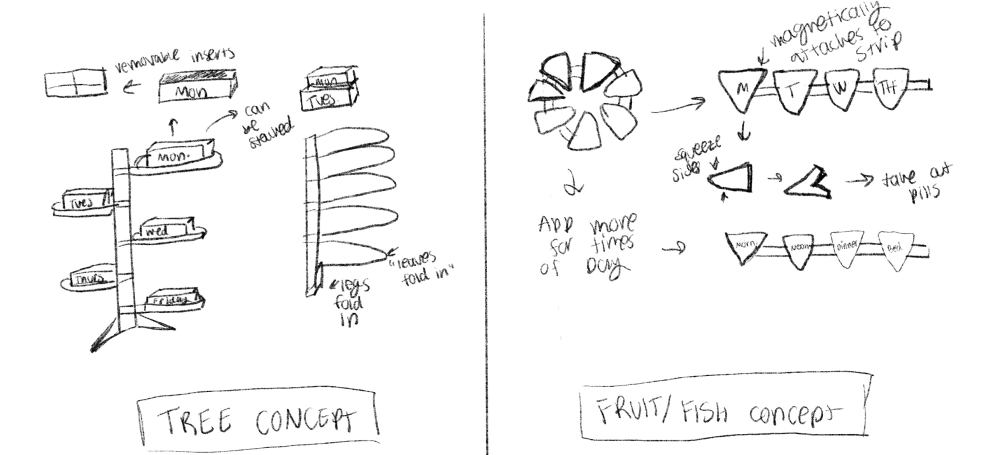 removable inserts
Mon
can
be
stacked
Mon
Tues
Mon.
Tues
Wed
Thurs
Friday
"leaves
fold in"
legs
fold
in
TREE CONCEPT
magnetically
attaches to
strip
M
T
W
TH
squeeze
sides
take out
pills
ADD more
for times
of Day
Morn
Noon
Dinner
Bed
FRUIT/FISH concept